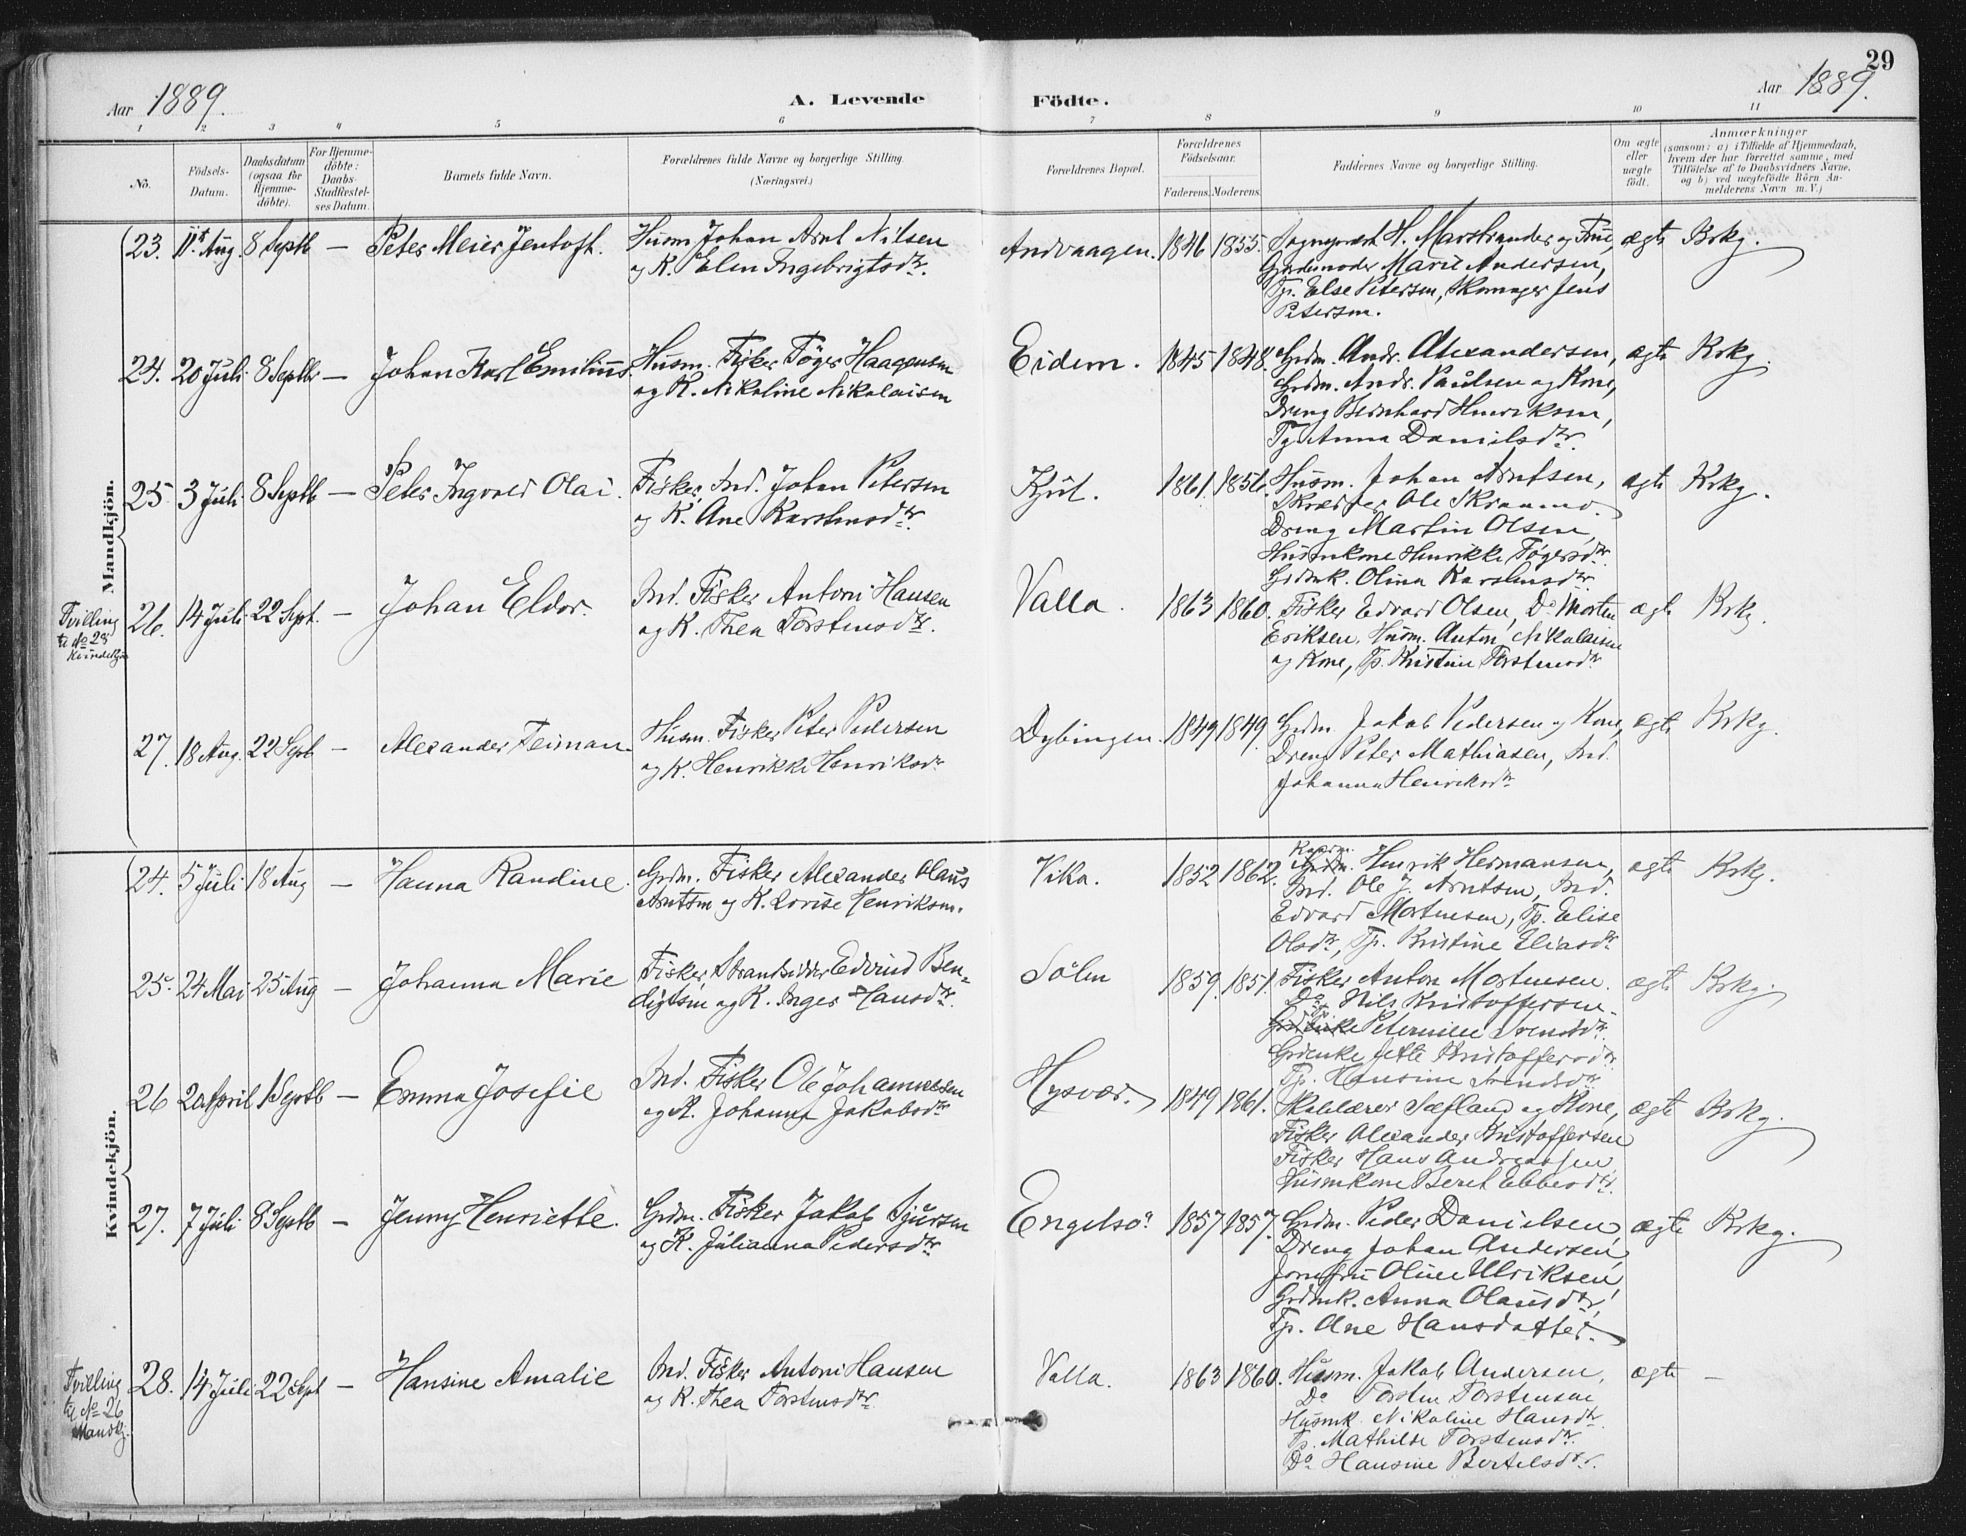 29
Aar 1889.
A. Levende
Födte.
Aar 1889.
1 2 3 4 5 6 7 8 9 10 11
No.
Födsels-Datum.
Daabsdatum (ogsaa for Hjemme-döbte).
For Hjemme-döbte: Daabs-Stadfæstel-ses Datum.
Barnets fulde Navn.
Forældrenes fulde Navne og borgerlige Stilling.
(Næringsvei.)
Forældrenes Bopæl.
Forældrenes Födselsaar.
Faderens. Moderens.
Faddernes Navne og borgerlige Stilling.
Om ægte eller uægte födt.
Anmærkninger
(saasom: a) i Tilfælde af Hjemmedaab,
hvem der har forrettet samme, med
Tilföielse af to Daabsvidners Navne,
og b) ved uægtefödte Börn An-
melderens Navn m. V.)
Mandkjön.
23. 11te Aug. 8 Septb — Peter Meier Jentoft. Husm Johan Arnt Nilsen
og K. Elen Ingebrigtsdtr.
Andvaagen. 1846 1855. Sognepræst H. Marstrander og Frue,
Gjordemoder Marie Andersen,
Tp. Else Petersen, Skomager Jens
Petersen.
ægte Krkg.
24. 20 Juli 8 Septbr — Johan Karl Emilius. Husm. Fisker Töger Haagensen
og K. Nikoline Nikolaisen
Eidem. 1845 1848. Grdm. Andr. Alexandersen,
Grdm. Andr. Paulsen og Kone,
Dreng Bernhard Henriksen,
Tp. Anna Danielsdtr.
ægte Krkg.
25. 3 Juli 8 Septb — Peter Ingvald Olai. Fisker, Ind. Johan Petersen
og K. Ane Karstensdtr.
Kjul. 1861. 1856. Husm. Johan Arntsen,
Skrædder Ole
Dreng Martin Olsen,
Husmkone Henrikke Tögersdtr.
Grdmk. Olina Karstensdtr
ægte Krkg.
Tvilling til No 28 Kvindekjön
26. 14 Juli 22 Sept. — Johan Eldor. Ind. Fisker Antoni Hansen
og K. Thea Torstensdtr.
Valla. 1863 1860. Fisker Edvard Olsen, Do Morten
Eriksen, Husm. Anton Nikolaisen
og Kone, Tp. Kristine Torstensdtr
ægte Krkg.
27. 18 Aug. 22 Septb — Alexander Feiman. Husm. Fisker Peter Pedersen
og K. Henrikke Henriksdtr
Dybingen. 1849 1849. Grdm. Jakob Pedersen og Kone,
Dreng Peter Mathiasen, Ind.
Johanna Henriksdtr.
ægte Krkg.
Kvindekjön.
24. 5 Juli 18 Aug — Hanna Randine. Grdm. Fisker Alexander Olaus
Arntsen og K. Lovise Henriksen.
Vika. 1852 1862. Henrik Hermansen,
Ind. Ole J. Arntsen, Ind.
Edvard Mortensen, Tp. Elise
Olsdtr, Tp. Kristine Eliasdtr
ægte Krkg.
25. 24 Mai 25 Aug — Johanna Marie Fisker, Strandsidder Edvind Ben-
digtsen og K. Inger Hansdtr.
Sölen 1859. 1851. Fisker Anton Mortensen.
Do Nils Kristoffersen.
Tp. Petermine Svendsdtr.
Grdenke Jette Kristoffersdtr
Tp. Hansine Svendsdtr
ægte Krkg.
26 20 April 1 Septb — Emma Josefie Ind. Fisker Ole Johannesen
og K. Johanna Jakobsdtr
Hysvær. 1849 1861. Skolelærer Sæfland og Kone,
Fisker Alexander Kristoffersen
Fisker Hans Andreassen
Husmkone Beret Ebbesdtr.
ægte Krkg.
27. 7 Juli 8 Septb — Jenny Henriette. Grdm. Fisker Jakob Sjursen
og K. Julianna Pedersdtr
Engelsö. 1857 1857. Grdm. Peder Danielsen,
Dreng Johan Andersen,
Jomfru Oline Ulriksen,
Grdmk. Anna Olausdtr,
Tp. Ane Hansdatter.
ægte Krkg.
Tvilling til No 26 Mandkj.
28. 14 Juli 22 Sept — Hansine Amalie Ind. Fisker Antoni Hansen
og K. Thea Torstensdtr.
Valla. 1863 1860. Husm. Jakob Andersen,
Do Torsten Torstensen
Husmk. Nikoline Hansdtr.
Tp. Mathilde Torstensdtr.
Do Hansine Bertelsdtr.
ægte —